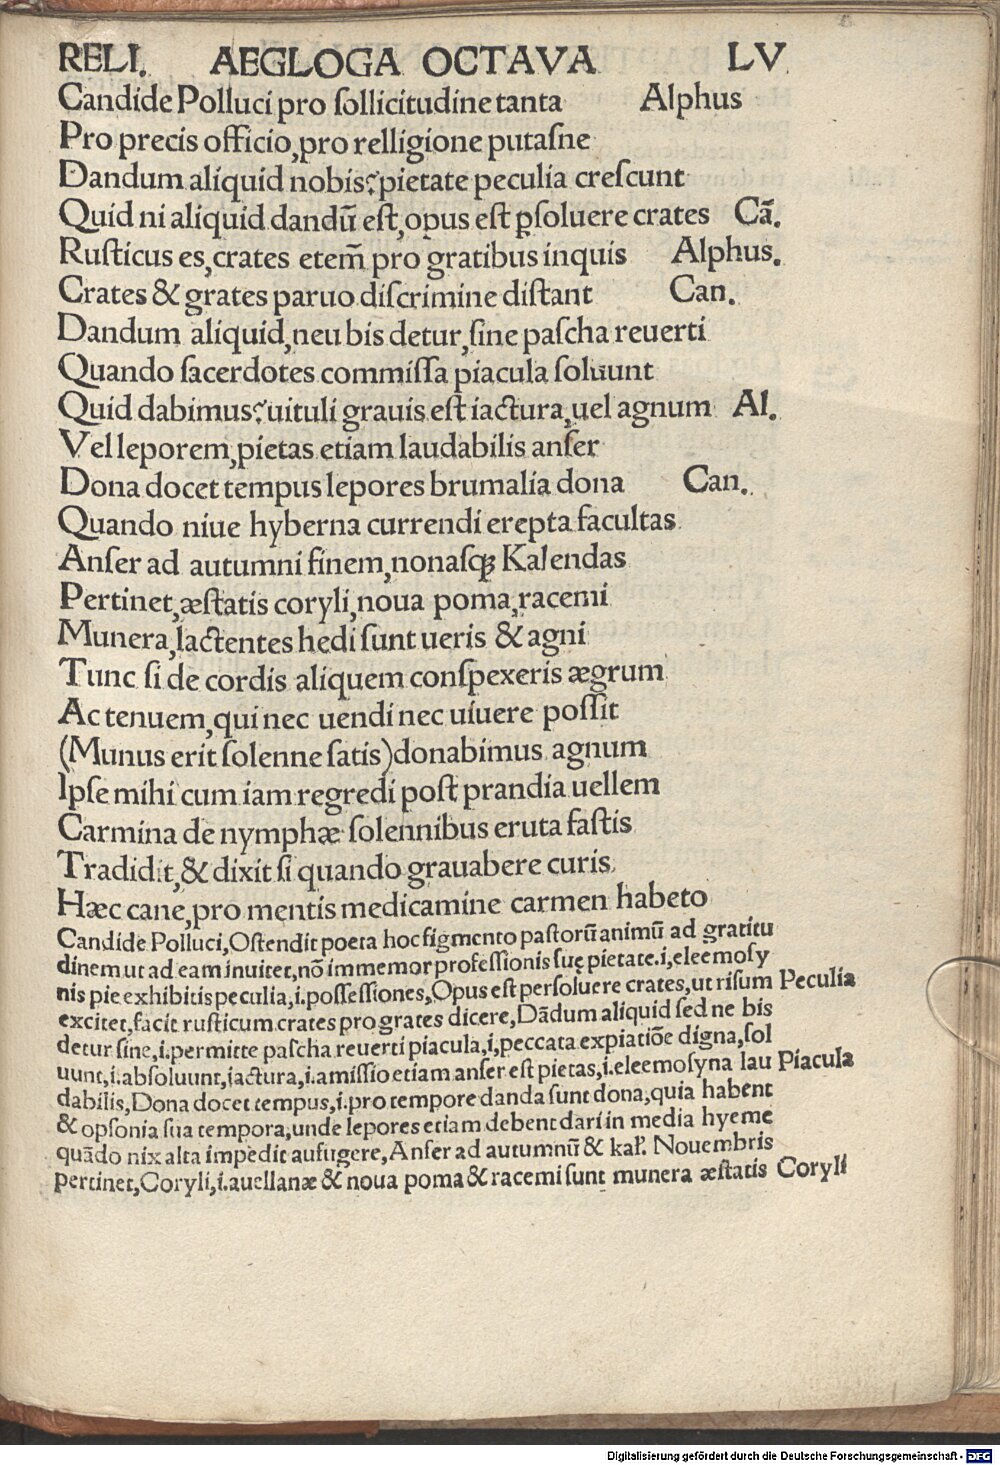 RELI. AEGLOGA OCTAVA LV
Candide Polluci pro ſollicitudine tanta Alphus
Pro precis officio,pro relligione putaſne
Dandum aliquid nobis?pietate peculia creſcunt
Quid ni aliquid dandū eſt,opus eſt ꝑſoluere crates Cā.
Ruſticus es,crates etem̄ pro gratibus inquis Alphus.
Crates & grates paruo diſcrimine diſtant Can.
Dandum aliquid,neu bis detur,ſine paſcha reuerti
Quando ſacerdotes commiſſa piacula ſoluunt
Quid dabimus?uituli grauis eſt iactura,uel agnum Al.
Vel leporem,pietas etiam laudabilis anſer
Dona docet tempus lepores brumalia dona Can.
Quando niue hyberna currendi erepta facultas
Anſer ad autumni finem,nonaſqꝫ Kalendas
Pertinet,æſtatis coryli,noua poma,racemi
Munera,lactentes hedi ſunt ueris & agni
Tunc ſi de cordis aliquem conſpexeris ægrum
Ac tenuem,qui nec uendi nec uiuere poſſit
(Munus erit ſolenne ſatis)donabimus agnum
Ipſe mihi cum iam regredi poſt prandia uellem
Carmina de nymphæ ſolennibus eruta faſtis
Tradidit,& dixit ſi quando grauabere curis
Hæc cane,pro mentis medicamine carmen habeto
Candide Polluci,Oſtendit poeta hoc figmento paſtorū animū ad gratitu
dinem ut ad eam inuitet,nō immemor profeſſionis ſuę pietate.i,eleemoſy
nis pie exhibitis peculia,i.poſſeſſiones,Opus eſt perſoluere crates,ut riſum Peculia
excitet,facit ruſticum crates pro grates dicere,Dādum aliquid ſed ne bis
detur ſine,i.permitte paſcha reuerti piacula,i,peccata expiatiōe digna,ſol
uunt,i.abſoluunt,iactura,i.amiſſio etiam anſer eſt pietas,i.eleemoſyna lau Piacula
dabilis,Dona docet tempus,i.pro tempore danda ſunt dona,quia habent
& opſonia ſua tempora,unde lepores etiam debent dari in media hyeme
quādo nix alta impedit aufugere,Anſer ad autumnū & kal'. Nouembris
pertinet,Coryli,i.auellanæ & noua poma & racemi ſunt munera æſtatis Coryli
Digitalisierung gefördert durch die Deutsche Forschungsgemeinschaft - DFG